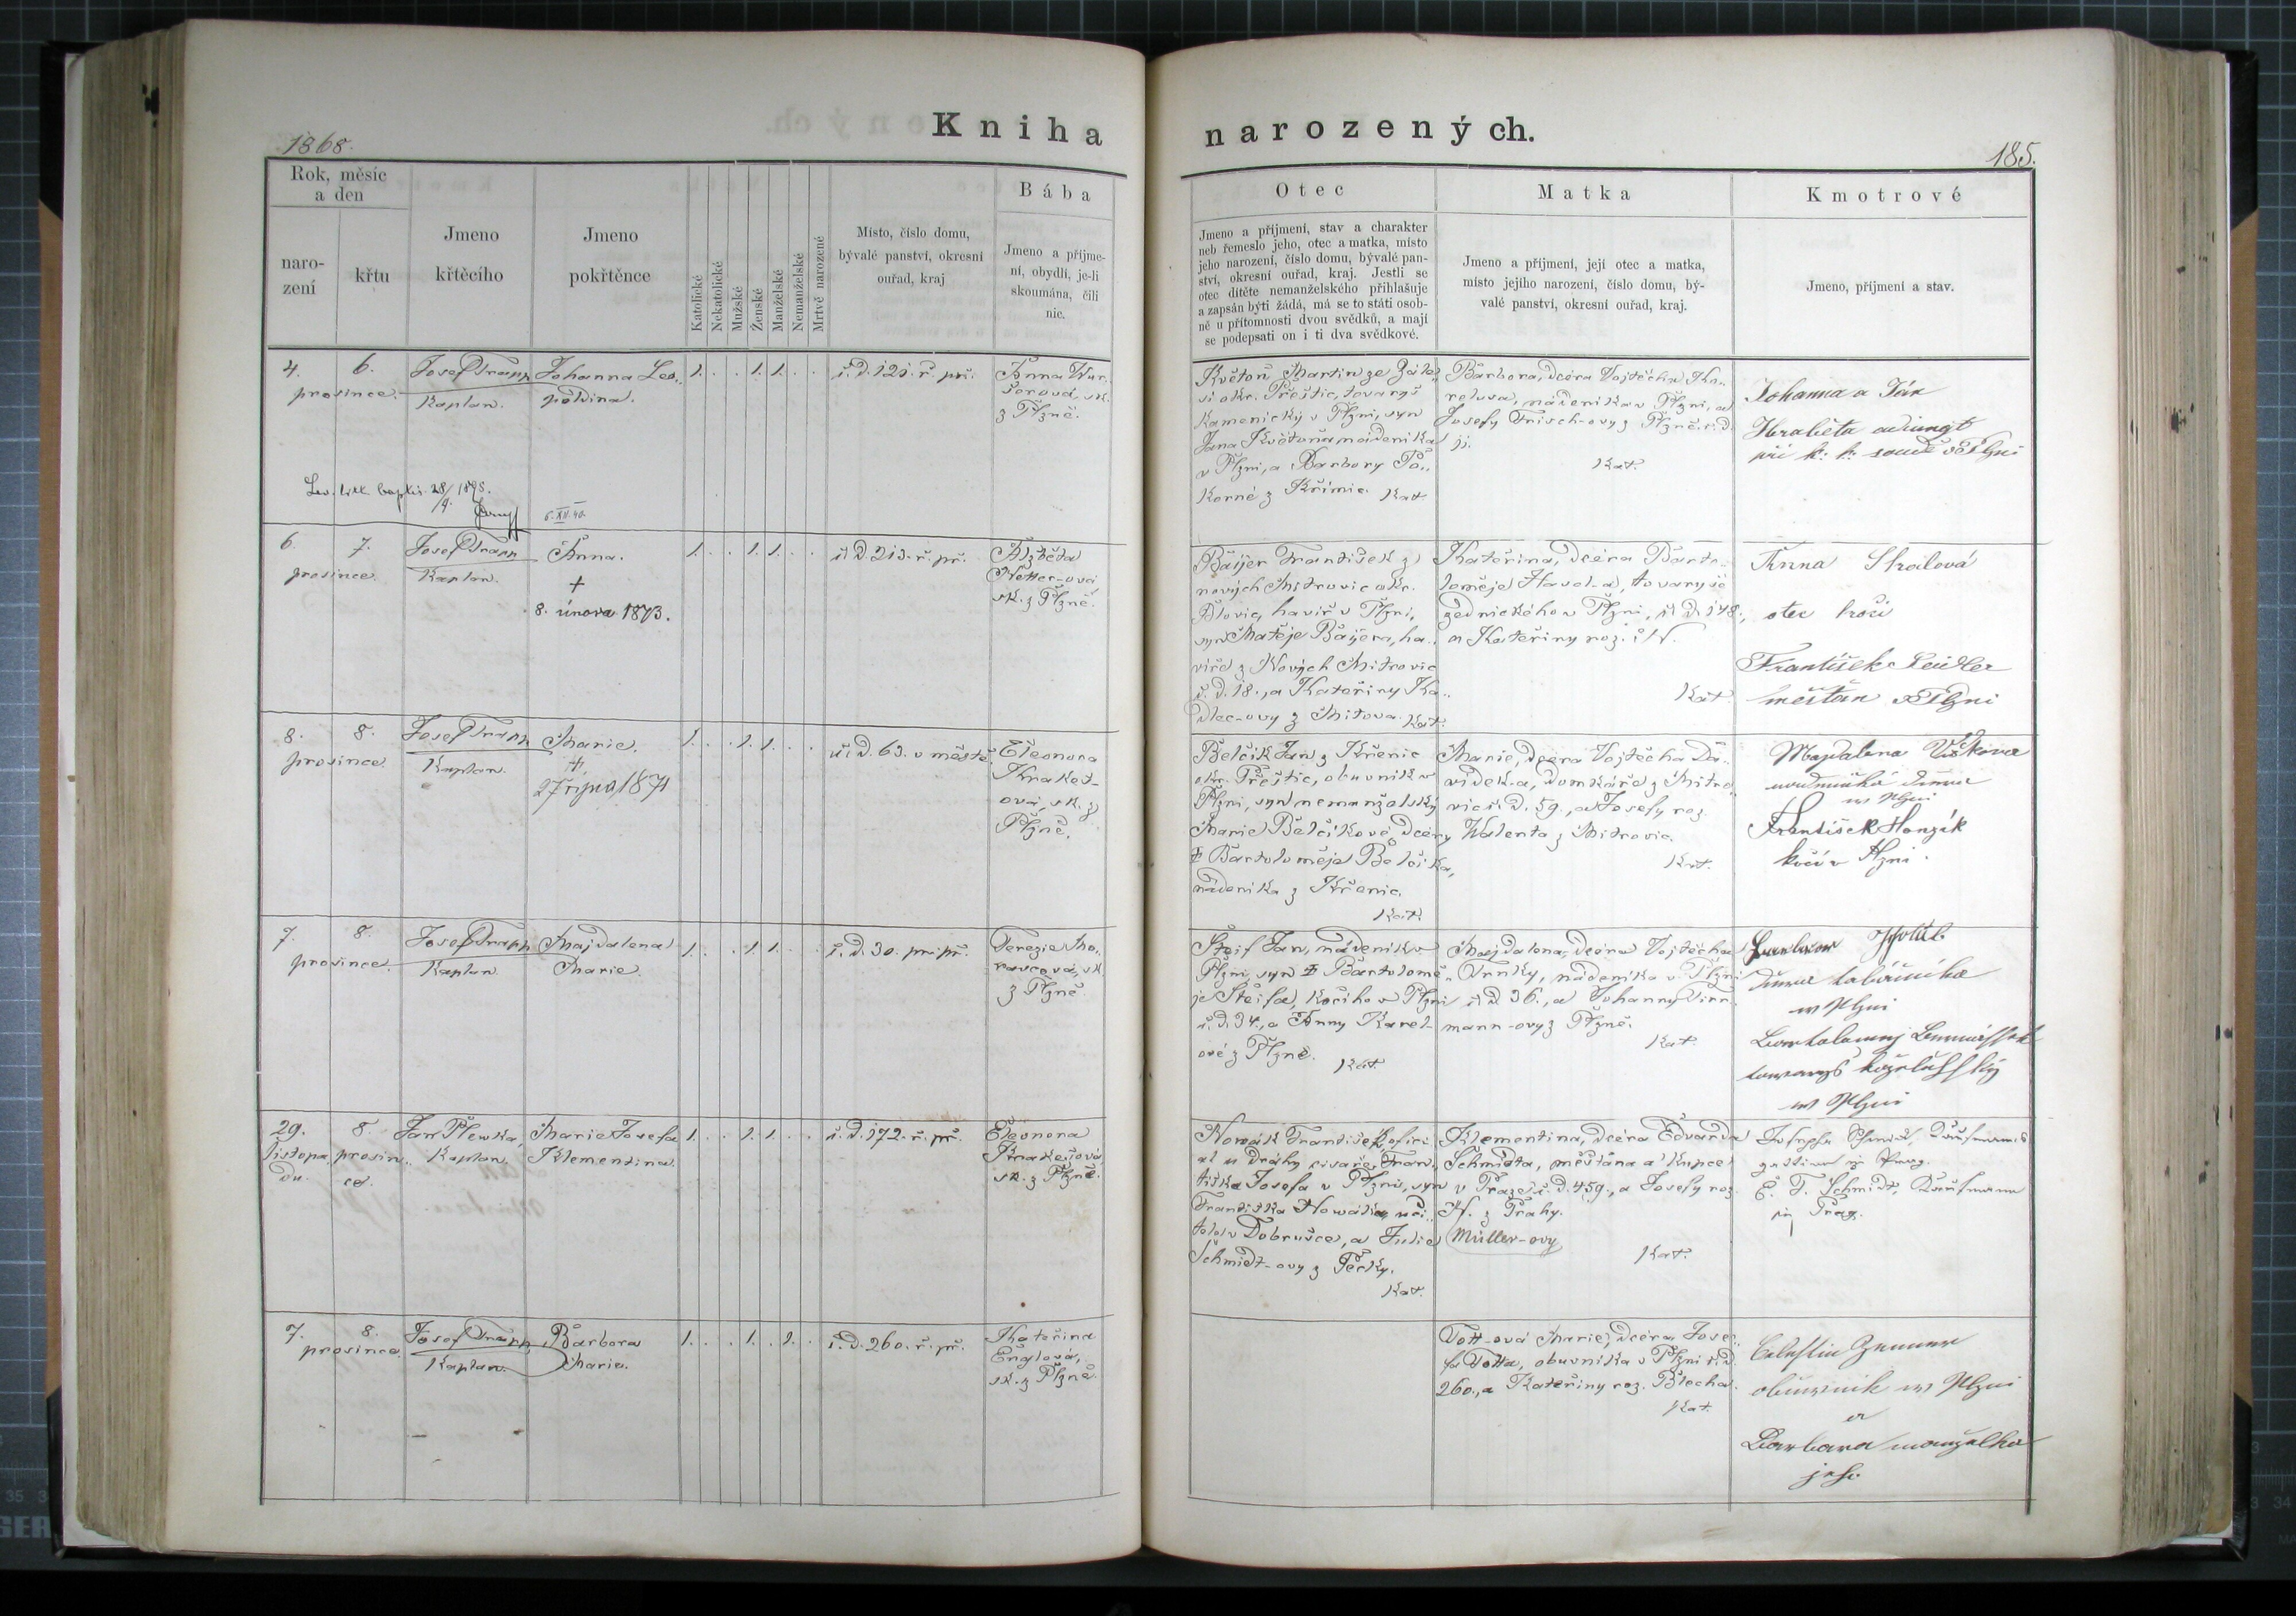 Kniha
narozených.
1868.
185.
Rok, měsíc
a den
naro-
zení
křtu
Jmeno
křtěcího
Jmeno
pokřtěnce
Katolické
Nekatolické
Mužské
Ženské
Manželské
Nemanželské
Mrtvě narozené
Místo, číslo domu,
bývalé panství, okresní
ouřad, kraj
Bába
Jmeno a příjme-
ní, obydlí, je-li
skoumána, čili
nic.
Otec
Jmeno a příjmení, stav a charakter
neb řemeslo jeho, otec a matka, místo
jeho narození, číslo domu, bývalé pan-
ství, okresní ouřad, kraj. Jestli se
otec dítěte nemanželského přihlašuje
a zapsán býti žádá, má se to státi osob-
ně u přítomnosti dvou svědků, a mají
se podepsati on i ti dva svědkové.
Matka
Jmeno a příjmení, její otec a matka,
místo jejího narození, číslo domu, bý-
valé panství, okresní ouřad, kraj.
Kmotrové
Jmeno, příjmení a stav.
4. 6.
prosince.
Josef Trapp
Kaplan.
Johanna Leo„
poldina.
1. . . 1. 1. . .
č. d. 121. ř. př.
Anna Wur„
sk.
z Plzně.
28/9. 1898.
6. XII. 40.
Květoň Martin ze Zále„
si okr. Přeštic, tovaryš
kamenický v Plzni, syn
Jana Květoňa nádeníka
v Plzni, a Barbory Po„
korné z Křimic. Kat.
Barbora, dcera Vojtěcha
nádeníka v Plzni, a
Josefy Frisch-ovy z Plzně č. d.
Kat.
Johanna a Ján
Hraběta adjungt
při k: k: soudě v Plzni
6. 7.
prosince.
Josef Trapp
Kaplan.
Anna.
+
8. února 1873.
1. . . 1. 1. . .
č. d. 213. ř. př.
Alžběta
Netter-ová
sk. z Plzně.
Baijer František z
nových Mitrovic okr.
Blovic, havíř v Plzni,
syn Matěje Baijera, ha„
víře z Nových Mitrovic
č. d. 18., a Kateřiny Ka„
dlec-ovy z Mitova. Kat.
Kateřina, dcera Barto„
loměje Havel-a, tovaryše
zednického v Plzni, č. d. 148.,
a Kateřiny roz. N.
Kat.
Anna Skalová
otec kočí
František Leidler
měšťan v Plzni
8. 8.
prosince.
Josef Trapp
Kaplan.
Marie.
+
27 října 1871
1. . . 1. 1. . .
č. d. 63. v městě.
Eleonora
Kraket-
ová, sk. z
Plzně.
Belčik Jan z Křenic
okr. Přeštic, obuvník v
Plzni, syn nemanželský
Marie Belčikové, dcery
Bartoloměje Belčika,
nádeníka z Křenic.
Kat.
Marie, dcera Vojtěcha Da„
videk-a, domkáře z Mitro„
vic č. d. 59., a Josefy roz.
Valenta z Mitrovic.
Kat.
Majdalena
w Plzni
František Honzík
kočí v Plzni.
7. 8.
prosince.
Josef Trapp
Kaplan.
Majdalena
Marie.
1. . . 1. 1. . .
č. d. 30. pr. př.
Terezie Mo„
ravcová, sk.
z Plzně.
Steif Jan, nádeník v
Plzni, syn Bartolomě„
je Steifa, kočího v Plzni
č. d. 34., a Anny Karel-
ové z Plzně.
Kat.
Majdalena, dcera Vojtěcha
Trnky, nádeníka v Plzni
č. d. 36., a Johanny Dirr„
mann-ovy z Plzně.
Kat.
w Plzni
w Plzni
29. 8.
listopa„ prosin„
du. ce.
Jan Plewka,
Kaplan.
Marie Josefa
Klementina.
1. . . 1. 1. . .
č. d. 172. ř. př.
Eleonora
Kraketová
sk. z Plzně.
Nowák František, ofici„
ál u dráhy císaře Fran„
tiška Josefa v Plzni, syn
Františka Nowáka, uči„
tele v Dobrušce, a Julie
Schmidt-ovy z Pecky.
Kat.
Klementina, dcera Edvarda
Schmidta, měšťana a kupce
v Praze č. d. 459., a Josefy roz.
N. z Prahy.
Müller-ovy
Kat.
Josepha Schmidt, Kaufmanns
gattin in Prag.
E. T. Schmidt, Kaufmann
in Prag.
7. 8.
prosince.
Josef Trapp
Kaplan.
Barbora
Marie.
1. . . 1. . 1. .
č. d. 260. ř. př.
Kateřina
Englová,
sk. z Plzně.
Tott-ová Marie, dcera Jose„
fa Totta, obuvníka v Plzni č. d.
260., a Kateřiny roz. Blecha.
Kat.
obuwnik w Plzni
a
Barbara manzelka
jeho